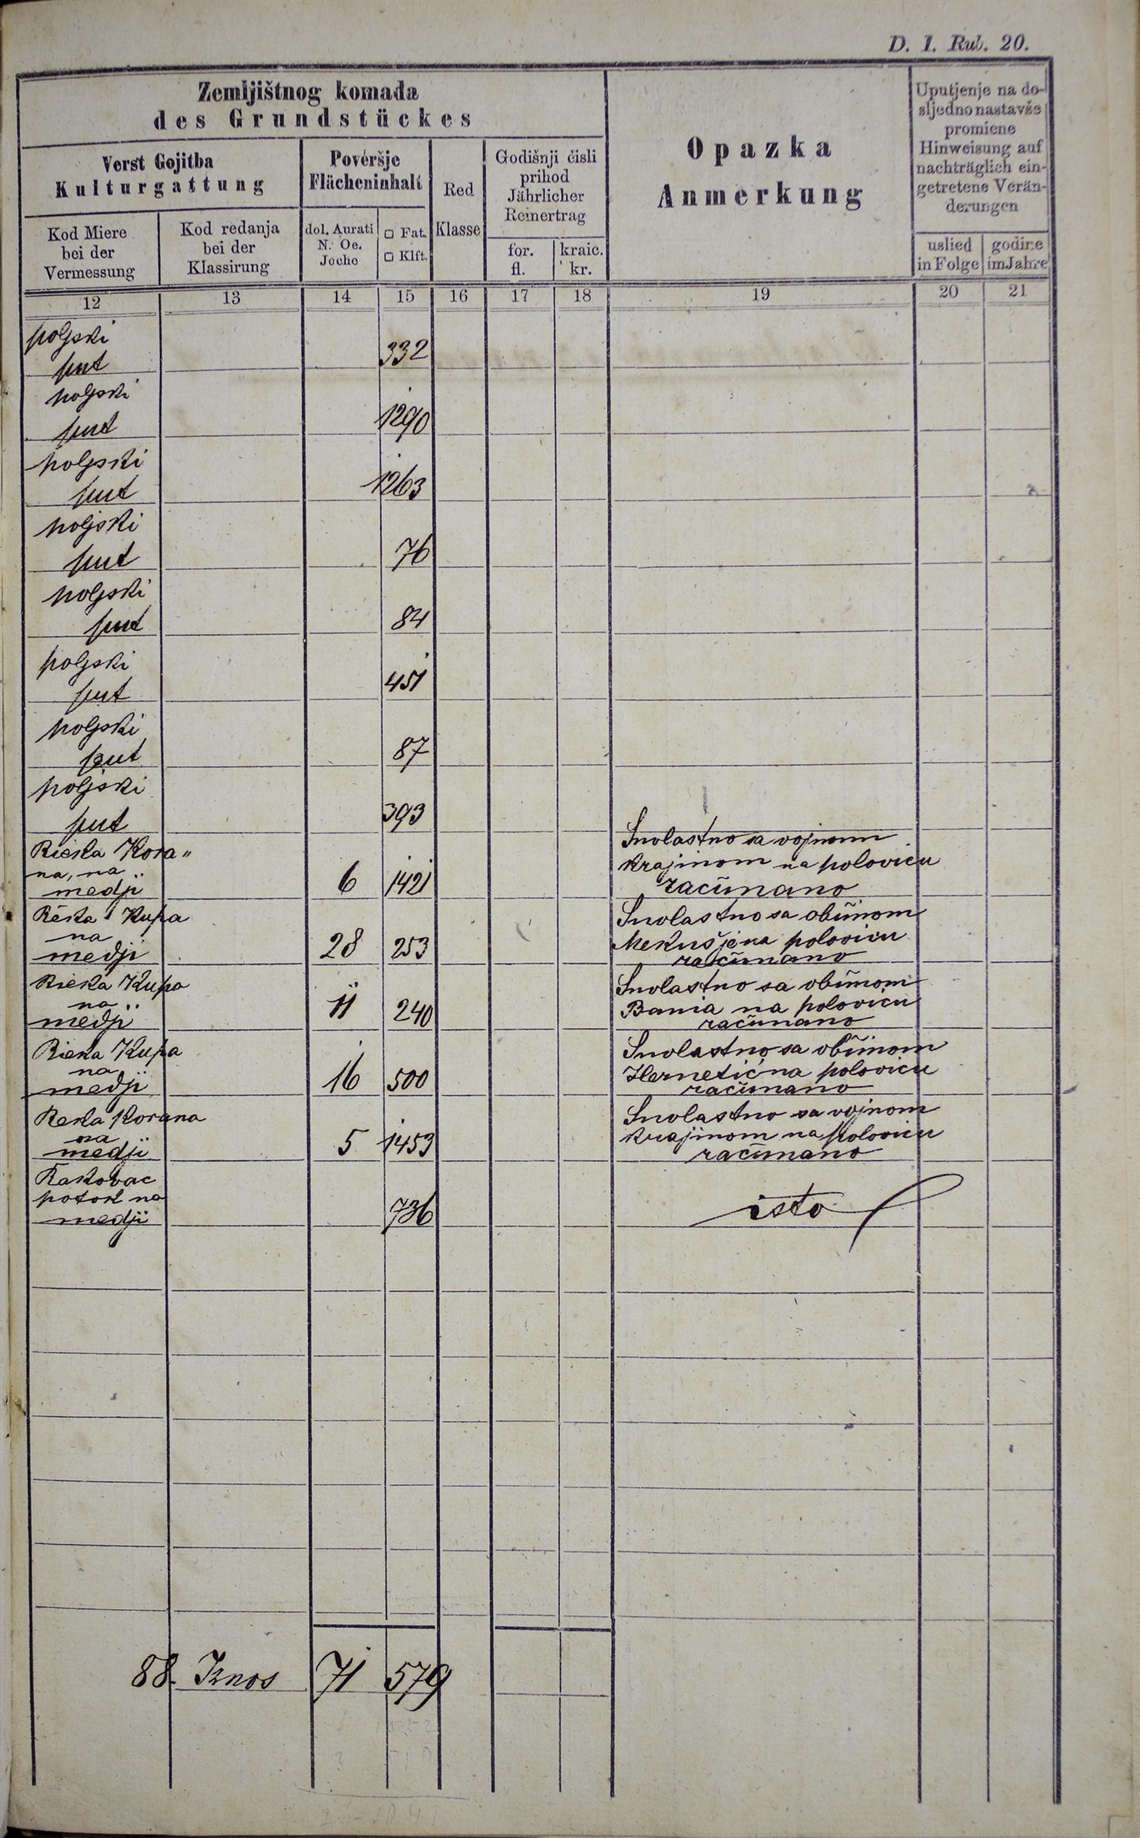 D. I. Rub. 20.
Zemljištnog komada
des Grundstückes
Verst Gojitba
Kulturgattung
Kod Miere
bei der
Vermessung
Kod redanja
bei der
Klassirung
Poveršje
Flächeninhalt
dol. Aurati
N. Oe.
Joche
□ Fat.
□ Klft.
Red
Klasse
Godišnji čisti
prihod
Jährlicher
Reinertrag
for.
fl.
kraic.
kr.
Opazka
Anmerkung
Uputjenje na do-
sljedno nastavše
promiene
Hinweisung auf
nachträglich ein-
getretene Verän-
derungen
uslied
in Folge
godine
im Jahre
12 13 14 15 16 17 18 19 20 21
poljski
put 332
poljski
put 1290
poljski
put 1263
poljski
put 76
poljski
put 84
poljski
put 451
poljski
put 87
poljski
put 393
Rieka Kora„
na, na
medji 6 1421
Suvlastno sa vojnom
krajinom na polovicu
računano
Réka Kupa
na
medji 28 253
Suvlastno sa obćinom
Mekušje na polovicu
računano
Rieka Kupa
na
medji 11 240
Suvlastno sa obćinom
Bania na polovicu
računano
Rieka Kupa
na
medji 16 500
Suvlastno sa obćinom
Hernetić na polovicu
računano
Reka Korana
na
medji 5 1453
Suvlastno sa vojnom
krajinom na polovicu
računano
Rakovac
potok na
medji 736
isto
88. Iznos 71 579